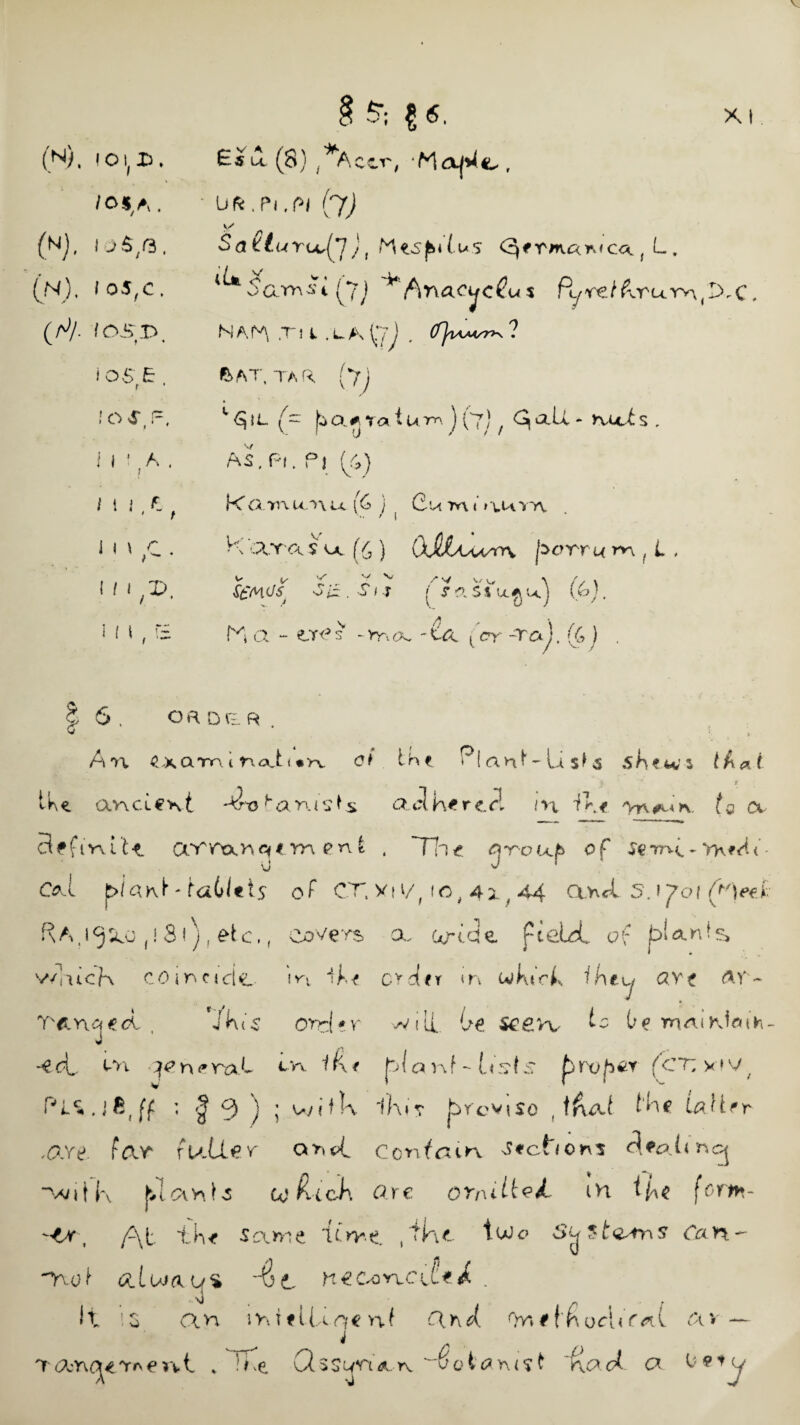 § 5; § 6. XI.
(N). 101,D. Ešu (8), *Acer, Maple,
105,A. UR.PI.PI (7)
(N). 105,B. Šalluru(7), Mespilus Germanica, L.
(N). 105,C. Šamši (7) *Anacyclus Pyrethrum, D.C.
(N). 105,D. NAM.TIL.LA (7).
105,E. BAT.TAR (7)
105,F. GIL (= pagratum) (7), Gall-nuts.
111,A. AŠ.PI.PI (6)
111,B, Kamunu (6), Cuminum.
111,C. Karašu (6) Allium porrum, L.
111,D. (šaššugu) (6).
111,E. Ma-ereš-ma-la (or -ra). (6).
§ 6. ORDER.
An examination of the Plant-Lists shews that
the ancient botanists adhered in the main to a
definite arrangement. The group of semi-medi-
cal plant-tablets of CT, XIV, 10, 42, 44 and S. 1701 (Meek
RA, 1920, 181), etc., covers a wide field of plants,
which coincide in the order in which they are ar-
ranged. This order will be seen to be maintain-
ed in general in the plant-lists proper (CT, XIV,
PLS. 18, ff : § 9); with this proviso, that the latter
are far fuller and contain sections dealing
with plants which are omitted in the form-
er. At the same time, the two systems can-
not always be reconciled.
It is an intelligent and methodical ar-
rangement. The Assyrian botanist had a very